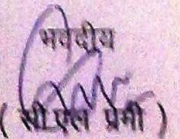 भवदीय
( सी.एल प्रेमी )